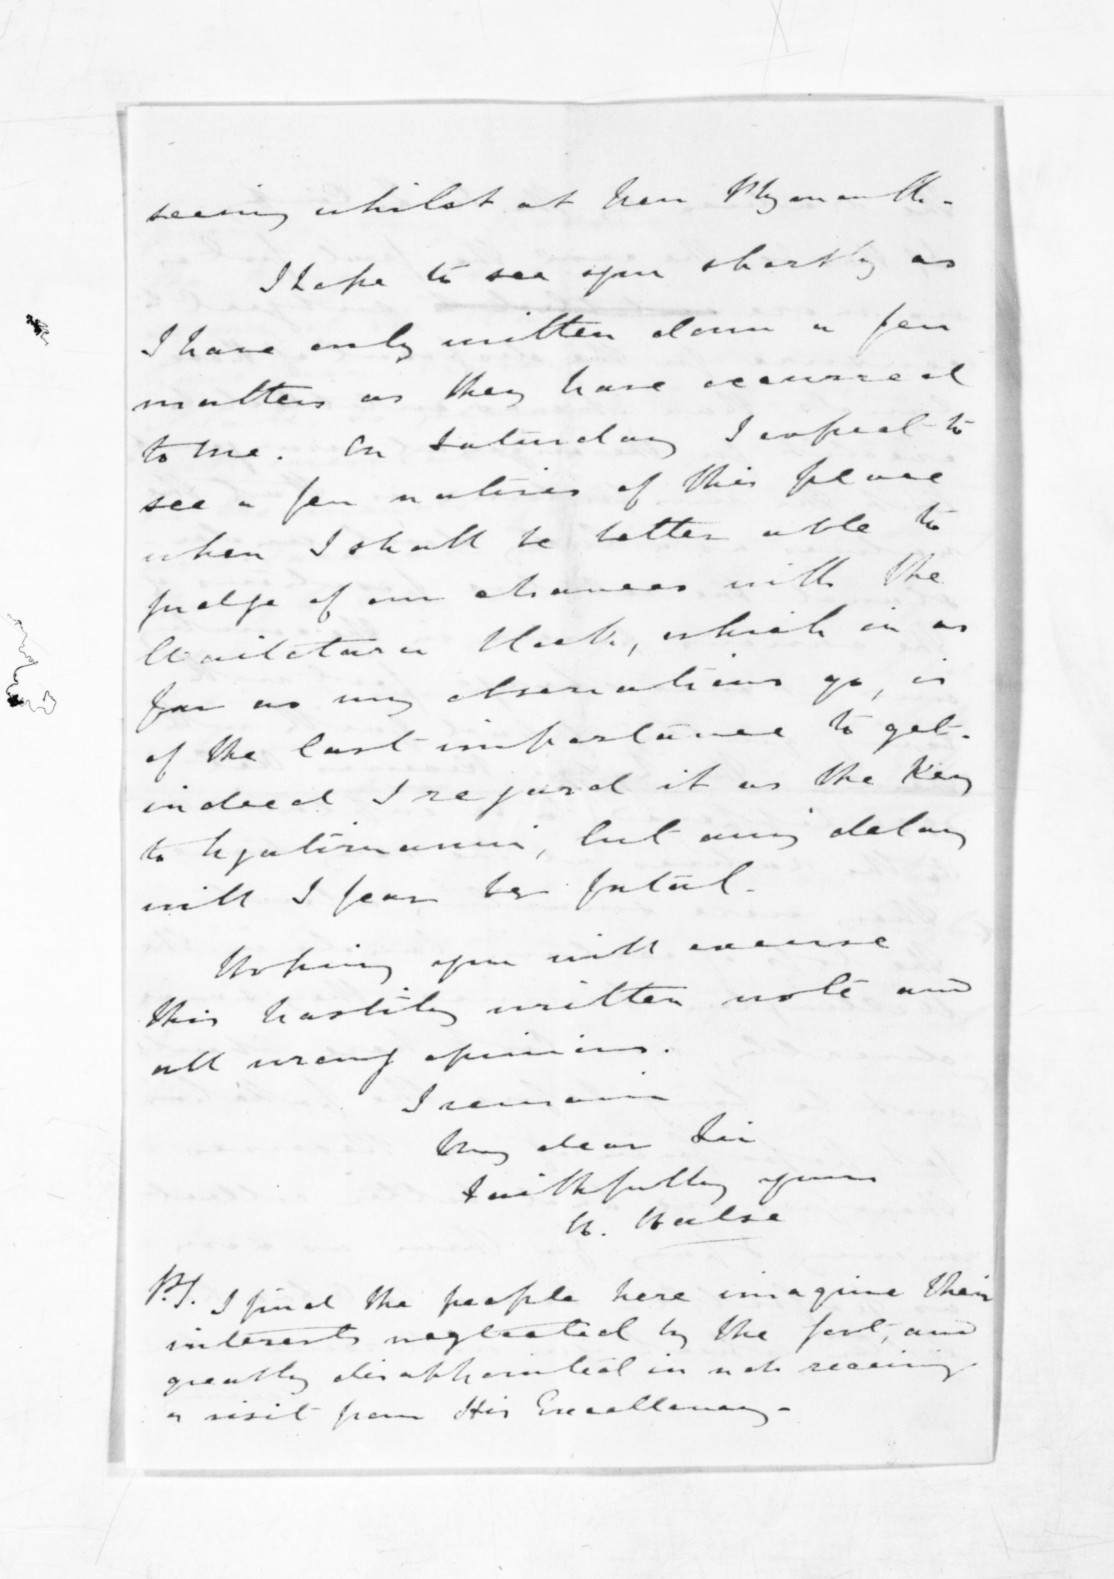 seeing whilst at New Plymouth.
I hope to see you shortly as
I have only written down a few
matters as they have occurred
to me. On Saturday I expect to
see a few natives of this place
when I shall be better able to
judge of our chances with the
Waitotara block, which in as
far as my observations go, is
of the last importance to get.
indeed I regard it as the Key
to Ngatiruanui, but any delay
will I fear be fatal.
Hoping you will excuse
this hastily written note and
all wrong opinions.
I remain
My dear Sir
Faithfully yours
H. Halse
P.S. I find the people here imagine their
interests neglected by the fort, and
greatly disappointed in not receiving
a visit from His Excellency.